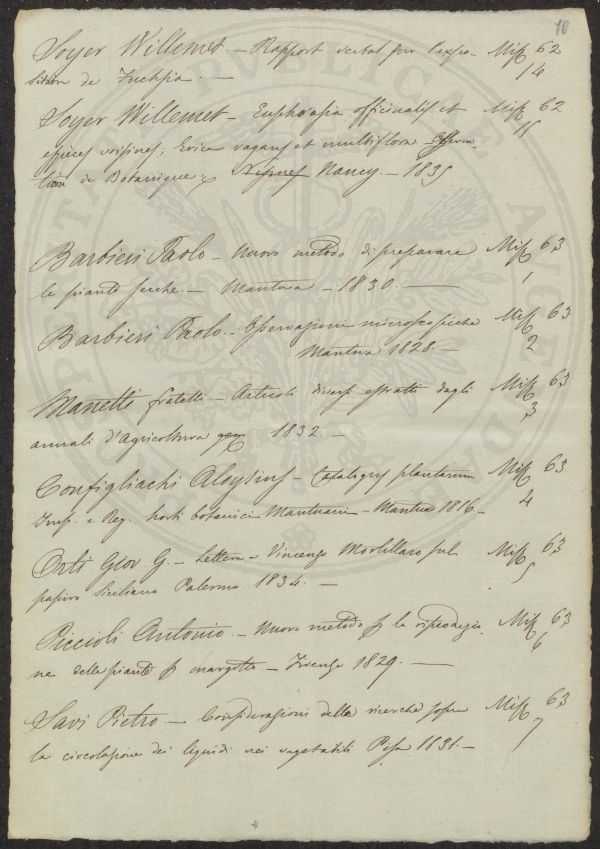 10
Soyer Willemet. – Rapport verbal sur l'expo- Miss 62
sition de Fuchsia. – 14
Soyer Willemet – Euphrasia officinalis et Miss 62
espèces voisines; Erica vagans et multiflora 15
de Botanique; Nancy. – 1835
Barbieri Paolo – Nuovo metodo di preparare Miss 63
le piante secche. – Mantova – 1830. – 1
Barbieri Paolo. – Osservazioni microscopiche Miss 63
Mantova 1828. – 2
Manetti fratelli – Articoli diversi estratti dagli Miss 63
annali d'agricoltura 1832. – 3
Configliachi Aloysius – Catalogus plantarum Miss 63
Imp. e Reg. horti botanici Mantuani – Mantua 1816 – 4
Orti Giov G. – Lettera a Vincenzo Mortillaro sul Miss 63
papiro Siciliano Palermo 1834. – 5
Piccioli Antonio. – Nuovo metodo p la riproduzio Miss 63
ne delle piante p margotto – Firenze 1829. – 6
Savi Pietro. – Considerazioni della ricerche sopra Miss 63
la circolazione dei liquidi nei vegetabili Pisa 1831. – 7